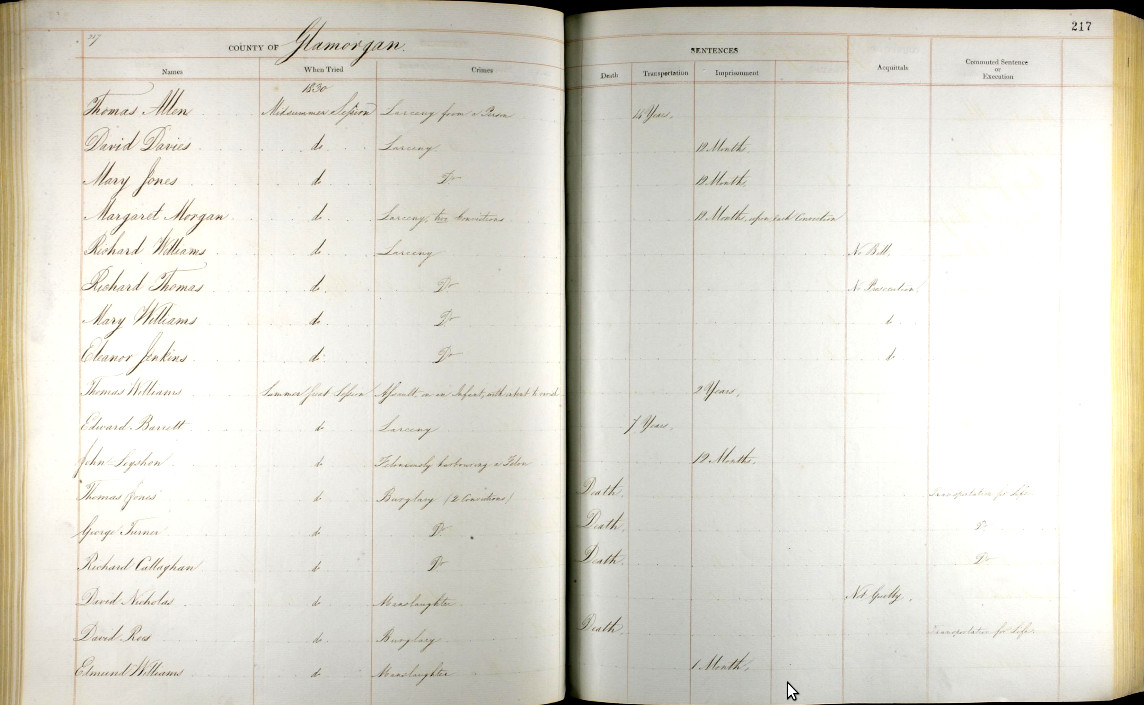 217
217
COUNTY OF Glamorgan.
SENTENCES
Names When Tried Crimes Death Transportation Imprisonment Acquittals Commuted Sentence or Execution
1830
Thomas Allen Midsummer Session Larceny from a Person 14 Years.
David Davies do. Larceny 12 Months.
Mary Jones do. Do 12 Months
Margaret Morgan do. Larceny, two Convictions 12 Months, upon each Conviction
Richard Williams do. Larceny No Bill.
Richard Thomas do. Do No Prosecution.
Mary Williams do. Do do.
Eleanor Jenkins do. Do do.
Thomas Williams Summer Great Session Assault, on an Infant, with intent to 2 Years.
Edward Barrett do Larceny 7 Years.
John do Feloniously harbouring a Felon 12 Months.
Thomas Jones do Burglary (2 Convictions) Death. Transportation for Life
George Turner do Do Death. Do
Richard Callaghan do Do Death. Do
David Nicholas do Manslaughter Not Guilty.
David Rees do. Burglary Death. Transportation for Life.
Edmund Williams do. Manslaughter 1 Month.